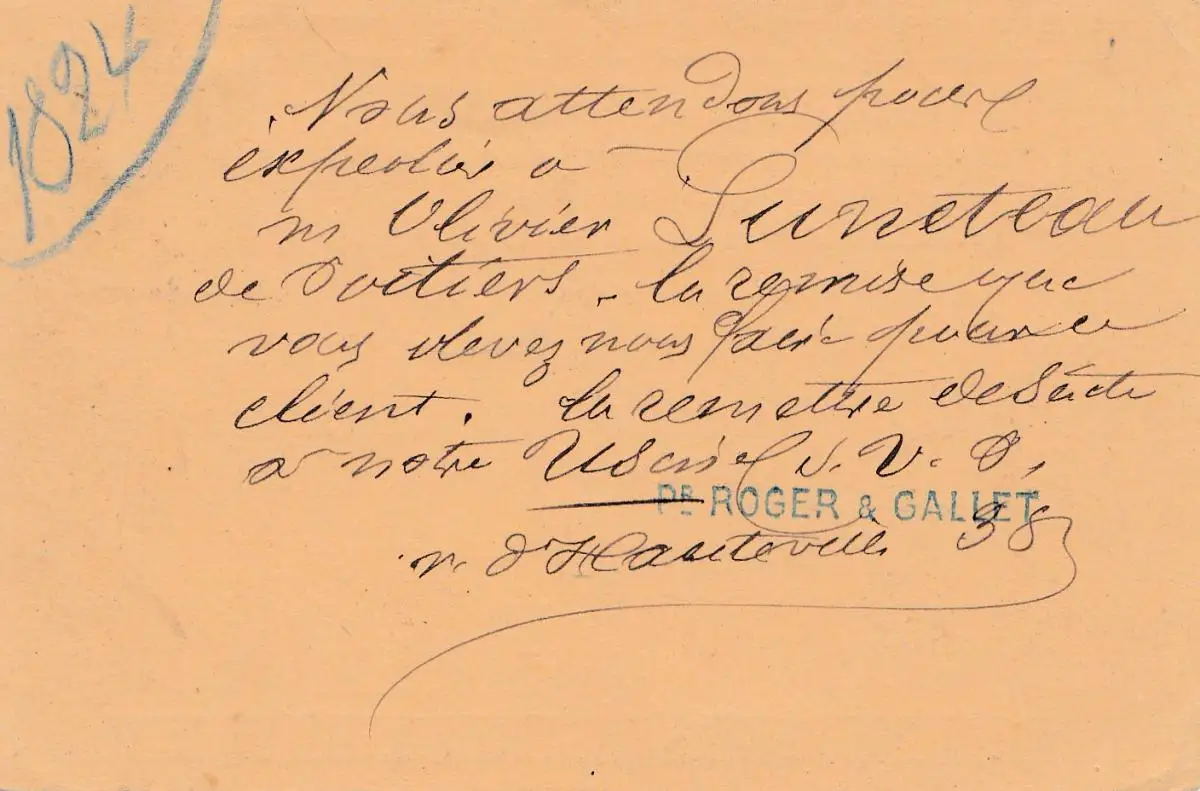 1824
Nous attendons pour
expedier a
m Olivier Luneteau
de Poitiers. la remise que
vous devez nous faire pour ce
client. la remettre de suite
a notre Usine S. V. P.
Pr ROGER & GALLET
r. d'Hauteville 38